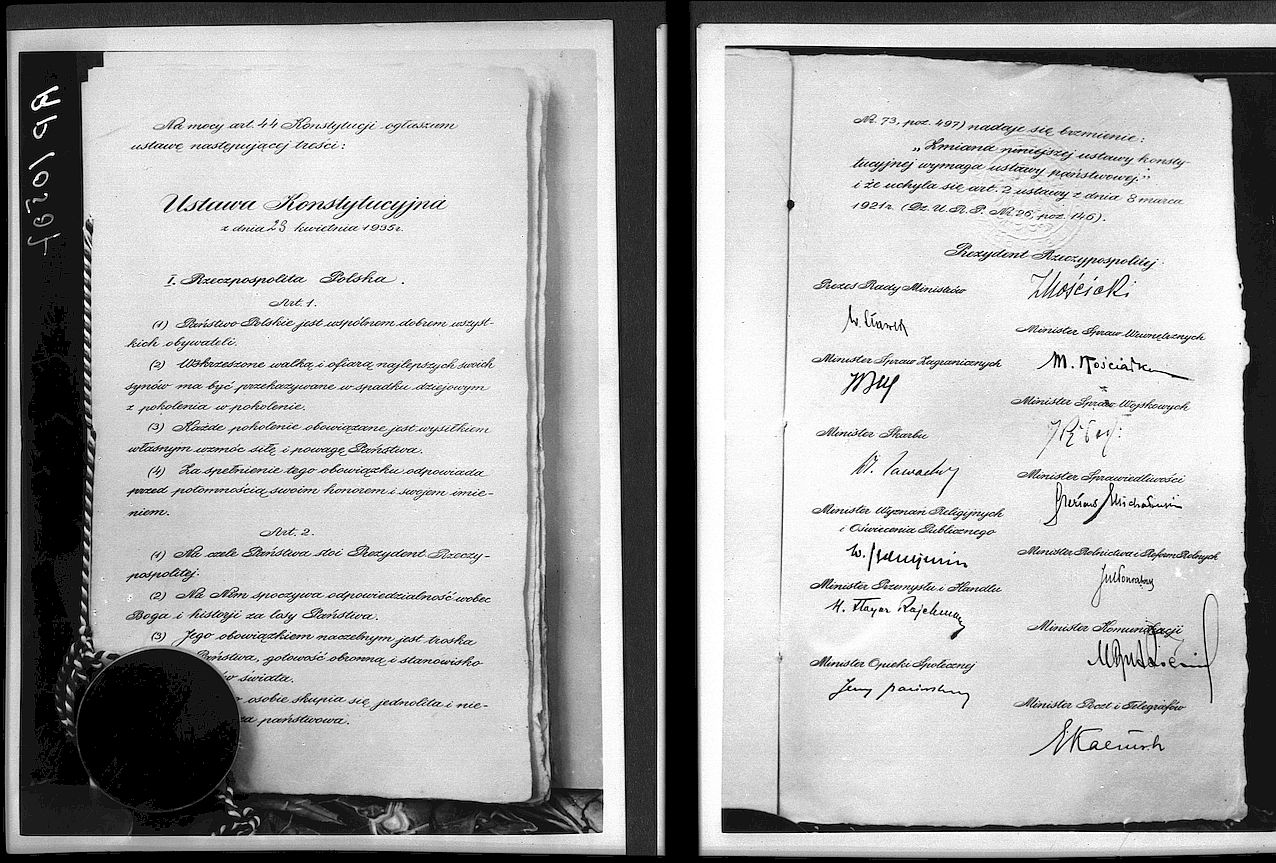 Na mocy art. 44 Konstytucji ogłaszam
ustawę następującej treści:
Ustawa Konstytucyjna
z dnia 23 kwietnia 1935r.
I. Rzeczpospolita Polska.
Art. 1.
(1) Państwo Polskie jest wspólnem dobrem wszyst-
kich obywateli.
(2) Wskrzeszone walką i ofiarą najlepszych swoich
synów ma być przekazywane w spadku dziejowym
z pokolenia w pokolenie.
(3) Każde pokolenie obowiązane jest wysiłkiem
własnym wzmóc siłę i powagę Państwa.
(4) Za spełnienie tego obowiązku odpowiada
przed potomnością swoim honorem i swojem imie-
niem.
Art. 2.
(1) Na czele Państwa stoi Prezydent Rzeczy-
pospolitej.
(2) Na Nim spoczywa odpowiedzialność wobec
Boga i historji za losy Państwa.
(3) Jego obowiązkiem naczelnym jest troska
Państwa, gotowość obronną i stanowisko
świata.
osobie skupia się jednolita i nie-
państwowa.
Nr. 73, poz. 497) nadaje się brzmienie:
„Zmiana niniejszej ustawy konsty-
tucyjnej wymaga ustawy państwowej."
i że uchyla się art. 2 ustawy z dnia 8 marca
1921r. (Dz. U. R. P. Nr. 26, poz. 146).
Prezydent Rzeczypospolitej
I Mościcki
Prezes Rady Ministrów
W. Sławek
Minister Spraw Wewnętrznych
M. Kościałkowski
Minister Spraw Zagranicznych
JBeck
Minister Spraw Wojskowych
Minister Skarbu
Wł. Zawadzki
Minister Sprawiedliwości
Czesław Michałowski
Minister Wyznań Religijnych
i Oświecenia Publicznego
W. Jędrzejewicz
Minister Rolnictwa i Reform Rolnych
JPoniatowski
Minister Przemysłu i Handlu
H. Floyar Rajchman
Minister Komunikacji
MButkiewicz
Minister Opieki Społecznej
Jerzy Paciorkowski
Minister Poczt i Telegrafów
EKaliński